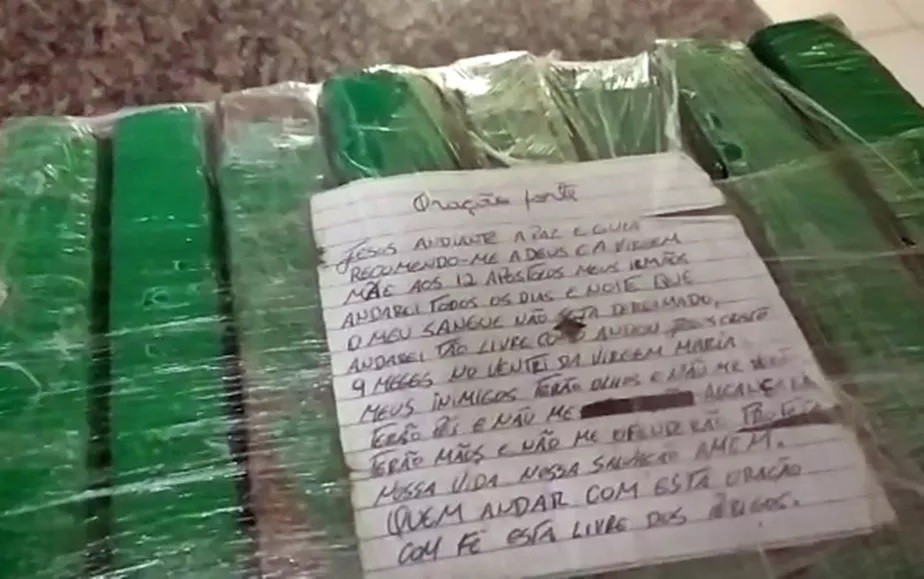 Oração forte
JESUS ANDIANTE A PAZ E GUIA
RECOMENDO-ME A DEUS E A VIRGEM
MÃE AOS 12 APOSTOLOS MEUS IRMÃOS
ANDAREI TODOS OS DIAS E NOITE QUE
O MEU SANGUE NÃO DEREIMADO,
ANDAREI TÃO LIVRE COMO ANDOU CRISTO
9 MESES NO VENTRE DA VIRGEM MARIA
MEUS INIMIGOS TERÃO OLHOS E NÃO ME
TERÃO PÉS E NÃO ME ALCANÇARA
TERÃO MÃOS E NÃO ME OFENDERÃO
NOSSA VIDA NOSSA SALVACAO AMEM.
QUEM ANDAR COM ESTA ORAÇÃO
COM FÉ ESTA LIVRE DOS